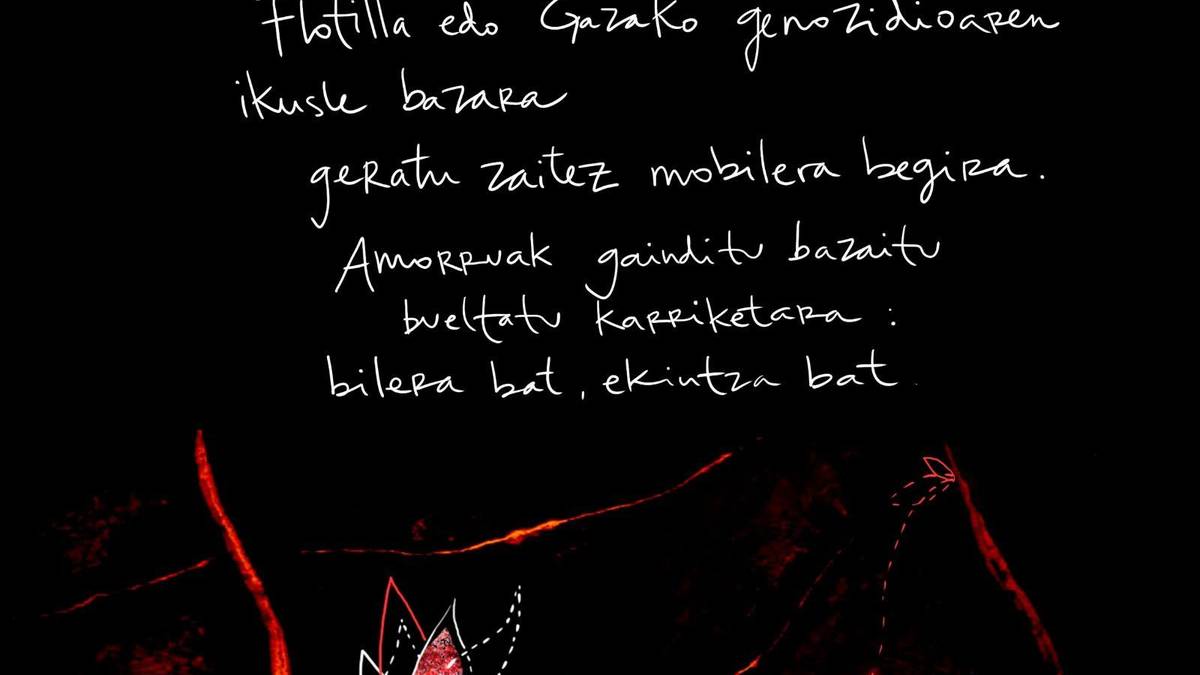 Flotilla edo Gazako genozidioaren
ikusle bazara
geratu zaitez mobilera begira.
Amorruak gainditu bazaitu
bueltatu karriketara :
bilera bat, ekintza bat